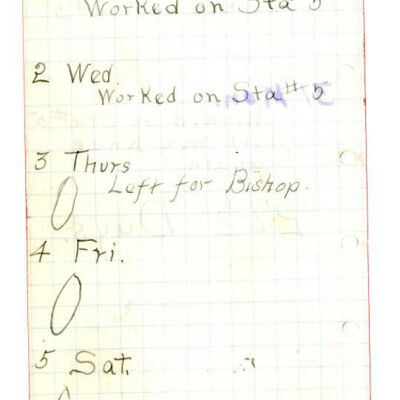 Worked on Sta 5
2 Wed.
Worked on Sta # 5
3 Thurs
Left for Bishop.
0
4 Fri.
0
5 Sat.
0